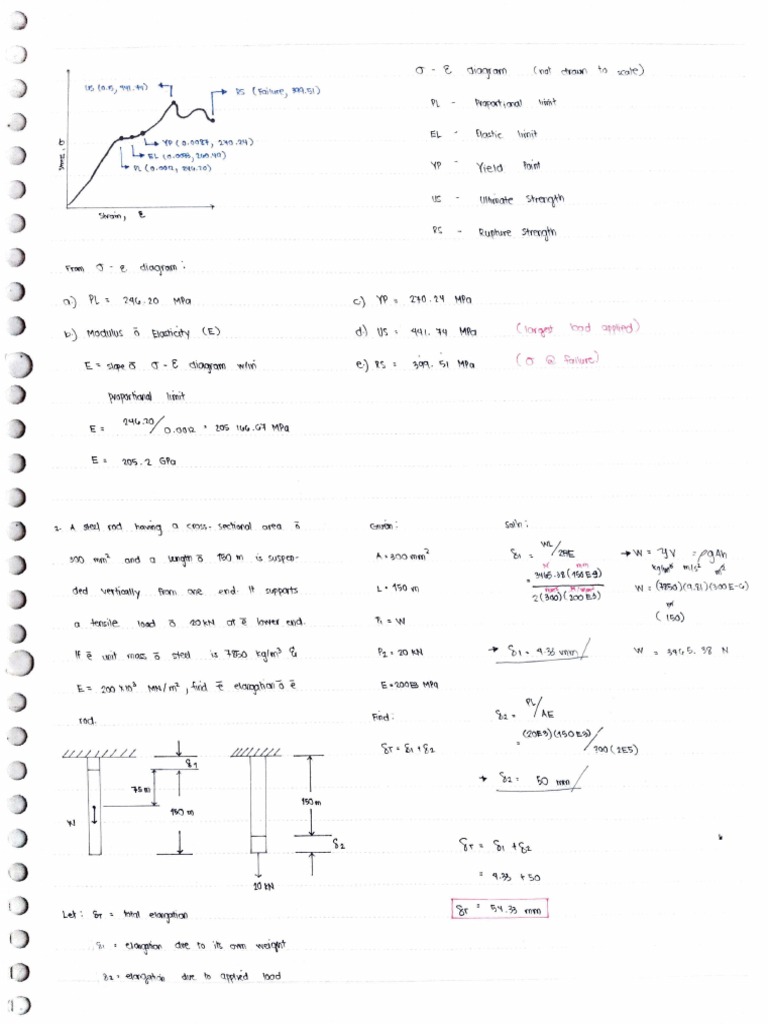 σ - ε diagram (not drawn to scale)
US (0.15, 441.74)
RS (Failure, 399.51)
YP (0.0087, 270.24)
EL (0.0055, 260.40)
PL (0.0012, 246.20)
Stress, σ
Strain, ε
PL - Proportional limit
EL - Elastic limit
YP - Yield Point
US - Ultimate Strength
RS - Rupture Strength
From σ - ε diagram:
a.) PL = 246.20 MPa
c.) YP = 270.24 MPa
b.) Modulus ō Elasticity (E)
d.) US = 441.74 MPa (largest load applied)
E = slope ō σ - ε diagram w/in
e.) RS = 399.51 MPa (σ @ failure)
proportional limit
E = 246.20/0.0012 = 205 166.67 MPa
E = 205.2 GPa
2. A steel rod having a cross-sectional area ō
300 mm² and a length ō 150 m is suspen-
ded vertically from one end. It supports
a tensile load ō 20kN at ē lower end.
If ē unit mass ō steel is 7850 kg/m³ &
E = 200 x10³ MN/m², find ē elongation ō ē
rod.
Given:
A = 300 mm²
L = 150 m
P₁ = W
P₂ = 20 KN
E = 200E3 MPa
Find:
δT = δ1 + δ2
Sol'n:
δ1 = WL/2AE
N mm
= 3465.38 (150E3)
2 (300)(200E3)
mm² N/mm²
→ δ1 = 4.33 mm
→ W = γV = ρgAh
kg/m³ m/s² m²
W = (7850)(9.81)(300E-6)
m
(150)
W = 3465.38 N
δ2 = PL/AE
= (20E3)(150E3)/300(2E5)
→ δ2 = 50 mm
δT = δ1 + δ2
= 4.33 + 50
δT = 54.33 mm
δ1
75m
150 m
W
150 m
δ2
20 kN
Let: δT = total elongation
δ1 = elongation due to its own weight
δ2 = elongation due to applied load